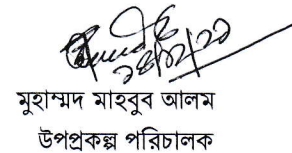 ১৪/০২/২১
মুহাম্মদ মাহবুব আলম
উপপ্রকল্প পরিচালক